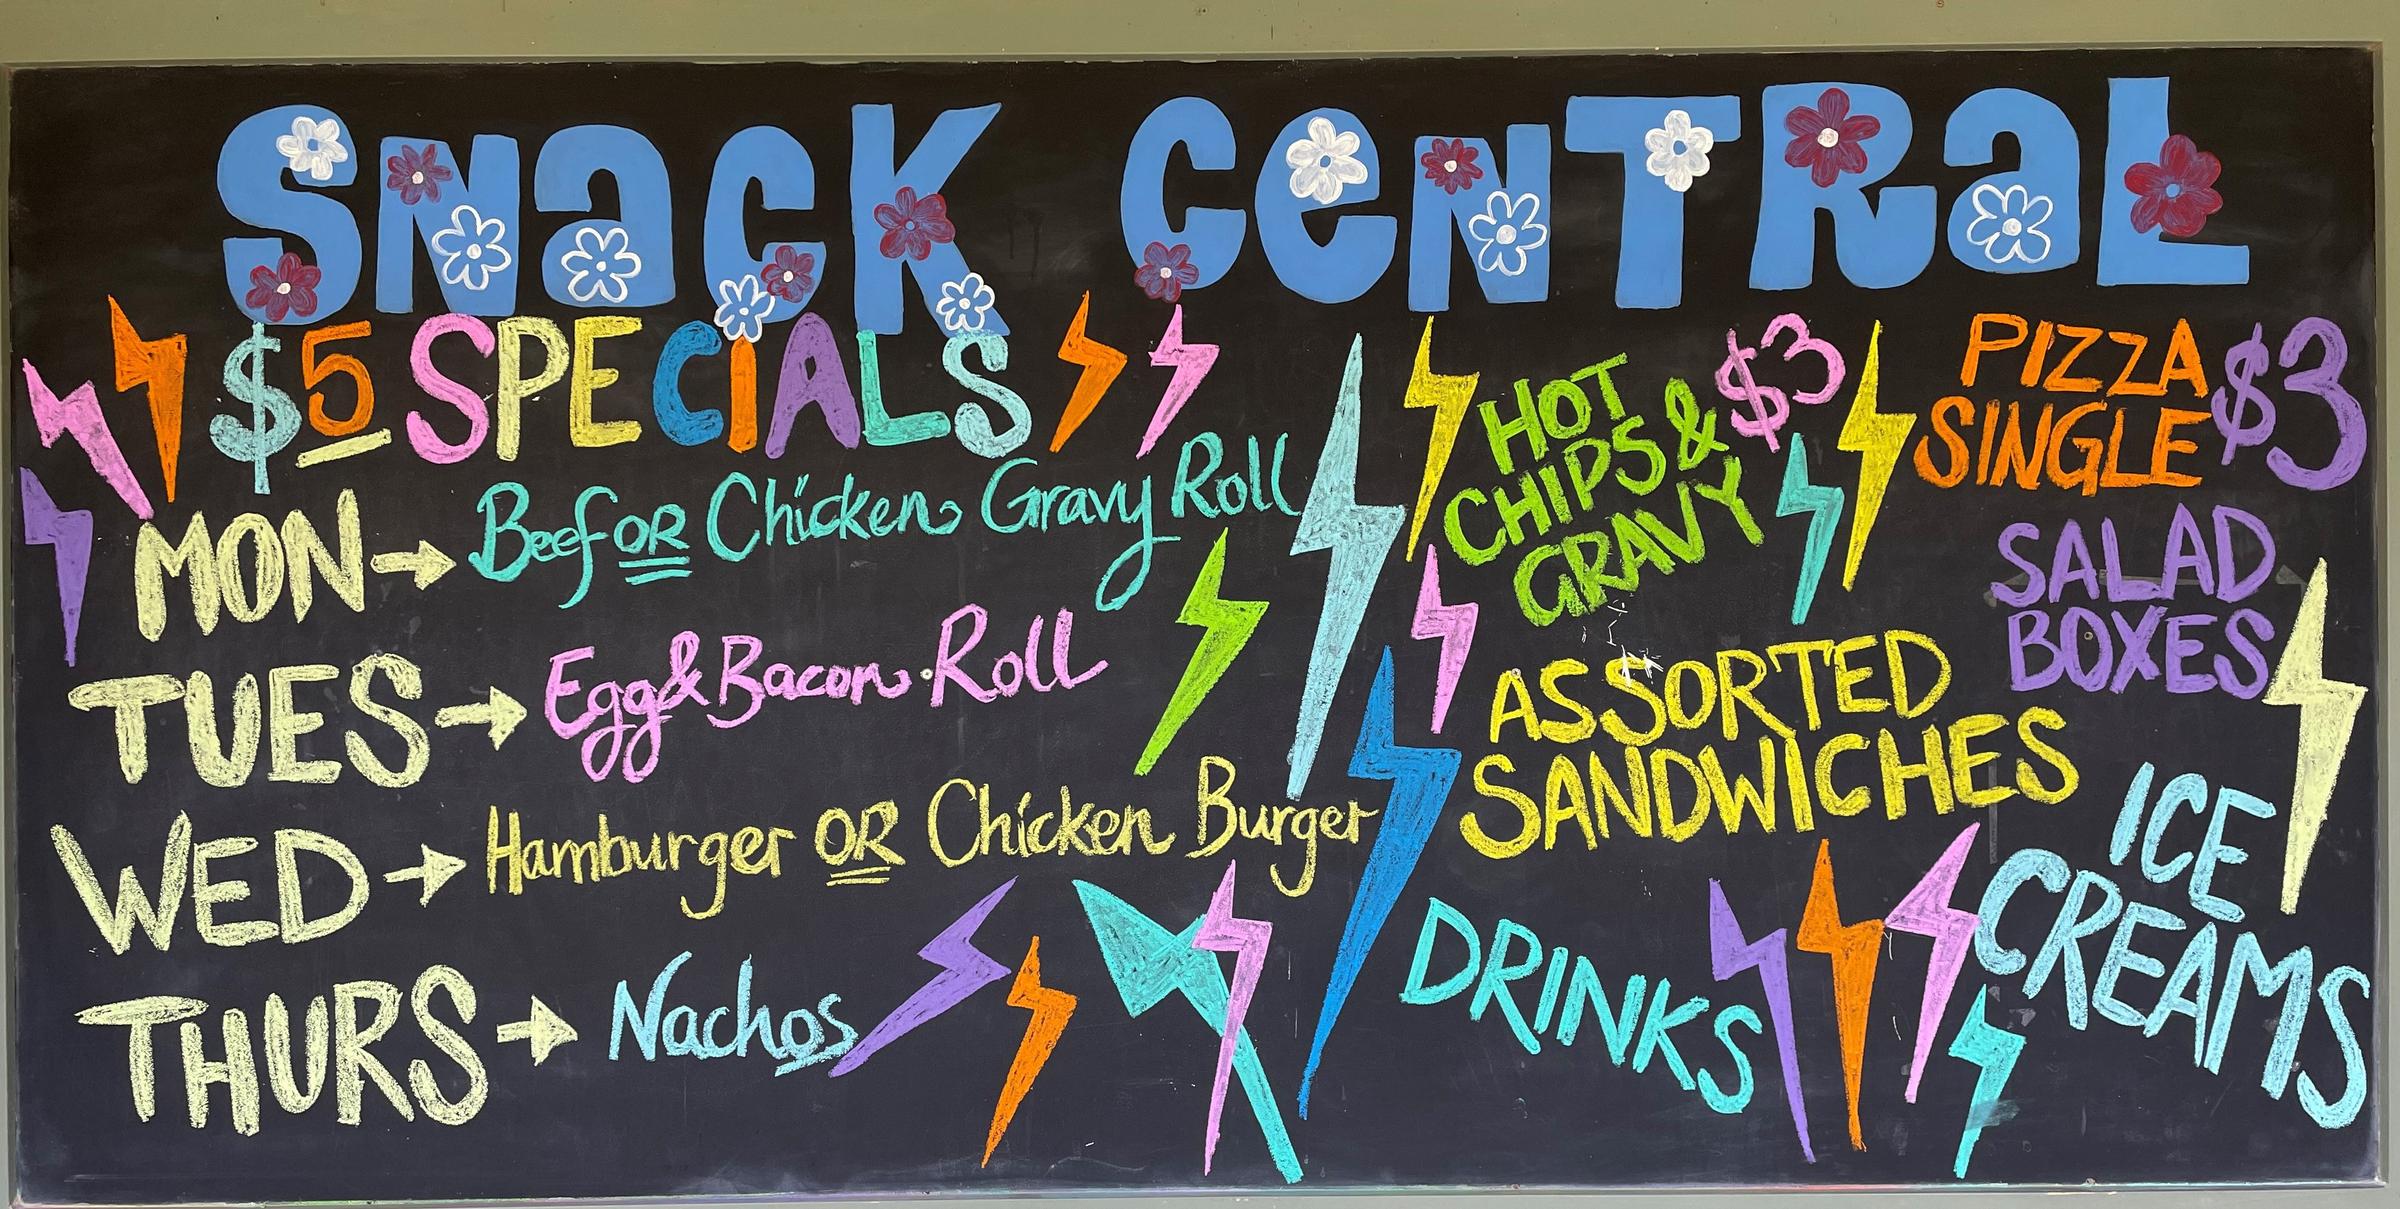 SNaCK CeNTRaL
$5 SPECIALS
MON → Beef OR Chicken Gravy Roll
TUES → Egg & Bacon Roll
WED → Hamburger OR Chicken Burger
THURS → Nachos
HOT
CHIPS &
GRAVY
$3
PIZZA
SINGLE
$3
SALAD
BOXES
ASSORTED
SANDWICHES
DRINKS
ICE
CREAMS